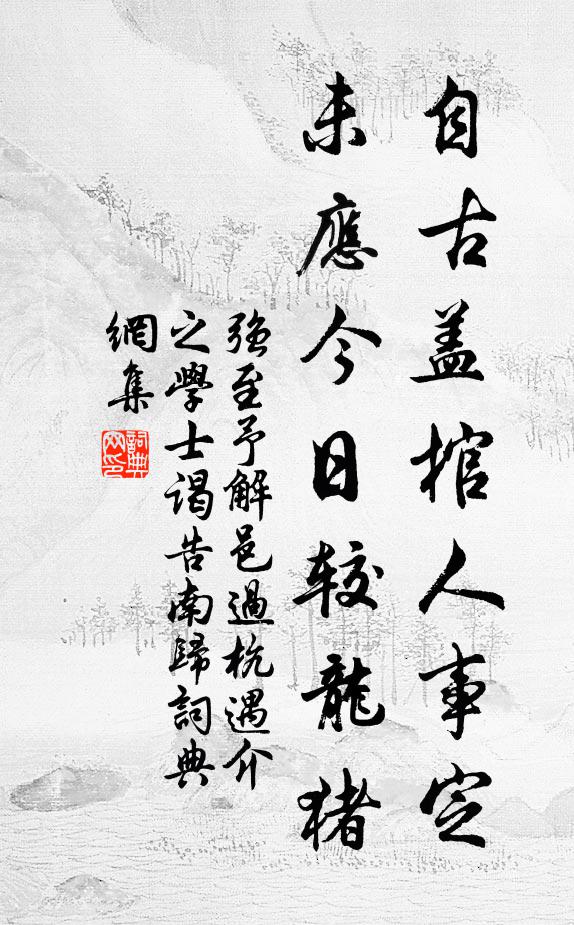 自古盖棺人事定
未應今日較龍猪
強至予解邑過杭遇介
之學士谒告南歸詞典
網集
詞典
网印